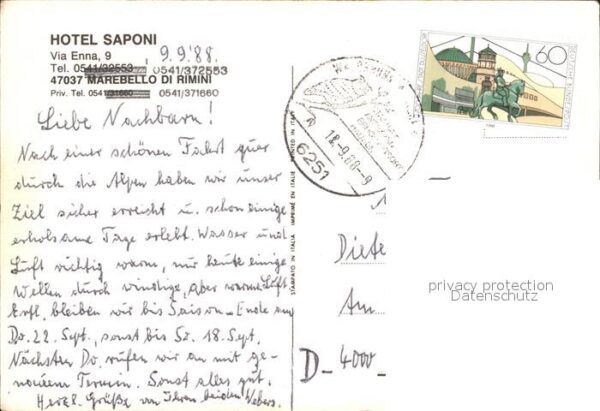 HOTEL SAPONI
Via Enna, 9
9.9.'88.
Tel. 0541/32553 0541/372553
47037 MAREBELLO DI RIMINI
Priv. Tel. 0541/31660 0541/371660
Liebe Nachbarn!
Nach einer schönen Fahrt quer
durch die Alpen haben wir unser
Ziel sicher erreicht u. schon einige
erholsame Tage erlebt. Wasser und
Luft richtig warm, nur heute einige
Wellen durch windige, aber warme Luft
Evtl. bleiben wir bis Saison-Ende am
Do. 22. Sept., sonst bis So. 18. Sept.
Nächsten Do. rufen wir an mit ge-
nauem Termin. Sonst alles gut.
Herzl. Grüße von Ihren beiden Webers.
STAMPATO IN ITALIA IMPRIMÉ EN ITALIE PRINTED IN ITALY
18.-9.88-9
6251
60
DEUTSCHE BUNDESPOST
Diete
Am
D- 4000
privacy protection
Datenschutz